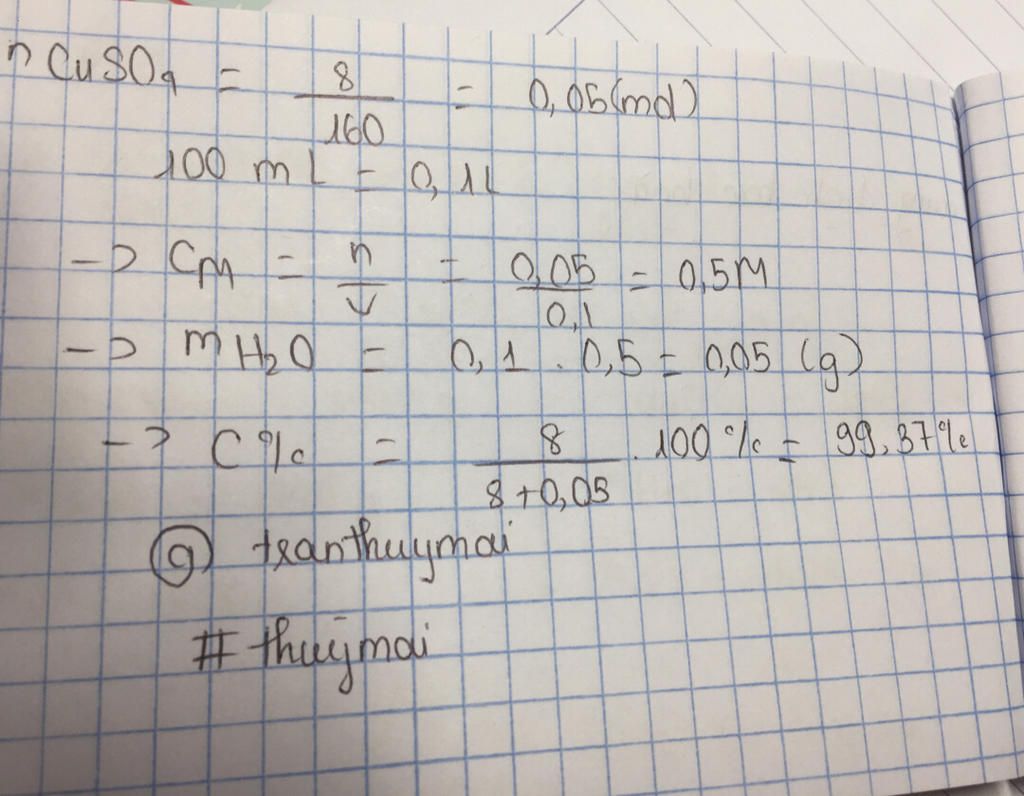 n CuSO4 = 8/160 = 0,05(mol)
100 ml = 0,1L
-> CM = n/V = 0,05/0,1 = 0,5M
-> mH2O = 0,1 . 0,5 = 0,05 (g)
-> C% = 8/(8+0,05) . 100% = 99,37%
@ tranthuymai
# thuymai